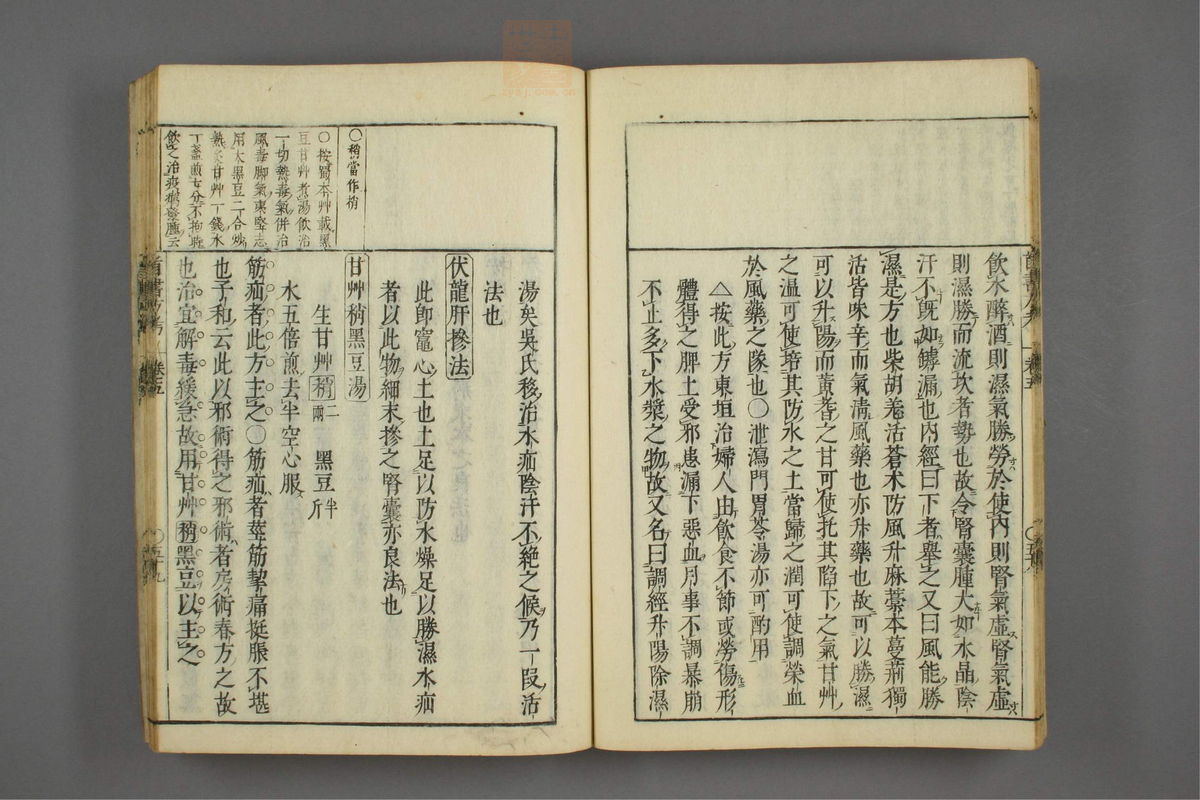 飲水醉酒則濕氣勝勞於使內則腎氣虛腎氣虛
則濕勝而流坎者勢也故令腎囊腫大如水晶陰
汗不既如罅漏也內經曰下者舉之又曰風能勝
濕是方也柴胡羗活蒼朮防風升麻藁本蔓荊獨
活皆味辛而氣清風藥也亦升藥也故可以勝濕
可以升陽而黃耆之甘可使托其陷下之氣甘艸
之溫可使培其防水之土當歸之潤可使調榮血
於風藥之隊也〇泄瀉門胃苓湯亦可酌用
△按此方東垣治婦人由飲食不節或勞傷形
體得之脾土受邪患漏下惡血月事不調暴崩
不止多下水漿之物故又名曰調經升陽除濕
湯矣吳氏移治水疝陰汗不絕之候乃一段活
法也
伏龍肝摻法
此即竈心土也土足以防水燥足以勝濕水疝
者以此物細末摻之腎囊亦良法也
甘艸稍黑豆湯
生甘艸稍二兩 黑豆半斤
水五倍煎去半空心服
筋疝者此方主之〇筋疝者莖筋掣痛挺脹不堪
也子和云此以邪術得之邪術者房術春方之故
也治宜解毒緩急故用甘艸稍黑豆以主之
〇稍當作梢
〇按蜀本艸載黑
豆甘艸煮湯飲治
一切熱毒氣併治
風毒脚氣東堅志
用大黑豆二合炒
熟炙甘艸一錢水
一盞煎七分不拘時
卷五